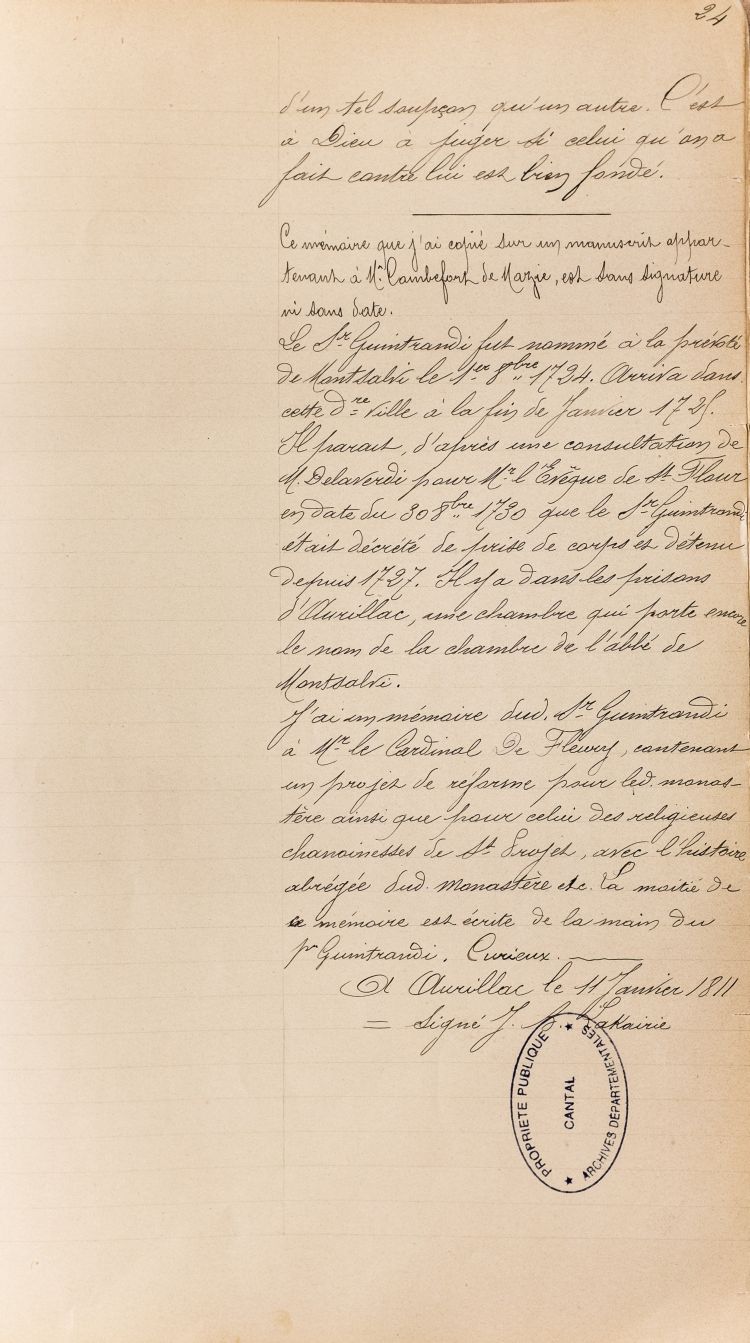 24
d'un tel soupçon qu'un autre. C'est
à Dieu à juger si celui qu'on a
fait contre lui est bien fondé.
Ce mémoire que j'ai copié sur un manuscrit appar-
tenant à Mr. Cambefort de Mazic, est sans signature
ni sans date.
Le Sr Guintrandi fut nommé à la prévôté
de Montsalvi le 1er 8bre 1724. Arriva dans
cette dre ville à la fin de Janvier 1725.
Il parait, d'après une consultation de
M. Delaverdi pour Mr. l'Evêque de St Flour
en date du 30 8bre 1730 que le Sr Guintrandi
était décrété de prise de corps et detenu
depuis 1727. Il y a dans les prisons
d'Aurillac, une chambre qui porte encore
le nom de la chambre de l'abbé de
Montsalvi.
J'ai un mémoire dud. Sr Guintrandi
à Mr le Cardinal De Fleury, contenant
un projet de réforme pour led. monas-
tère ainsi que pour celui des religieuses
chanoinesses de St Projet, avec l'histoire
abrégée dud. monastère etc. La moitié de
ce mémoire est écrite de la main du
Guintrandi. Curieux.
A Aurillac le 11 Janvier 1811
= Signé J.
PROPRIETE PUBLIQUE
CANTAL
ARCHIVES DÉPARTEMENTALES